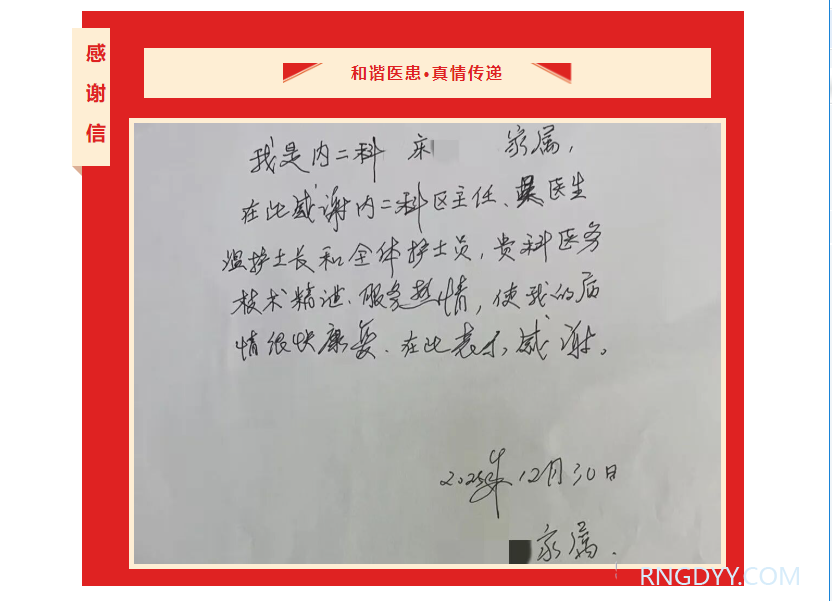 感谢信
和谐医患•真情传递
我是内二科 家属，
在此感谢内二科区主任、吴医生
温护士长和全体护士员，贵科医务
技术精进、服务热情，使我的病
情很快康复、在此表示感谢。
2025年12月30日
家属.
RNGDYY.COM